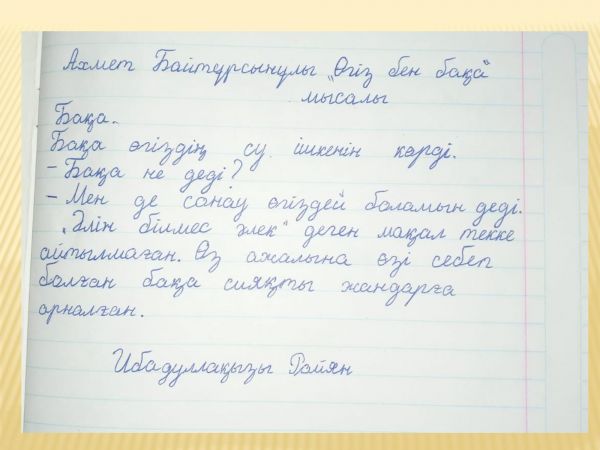 Ахмет Байтұрсынұлы „Өгіз бен бақа"
мысалы
Бақа.
Бақа өгіздің су ішкенін көрді.
- Бақа не деді?
- Мен де сонау өгіздей боламын деді.
„Әлін білмес әлек" деген мақал текке
айтылмаған. Өз ажалына өзі себеп
болған бақа сияқты жандарға
арналған.
Ибадуллақызы Раян